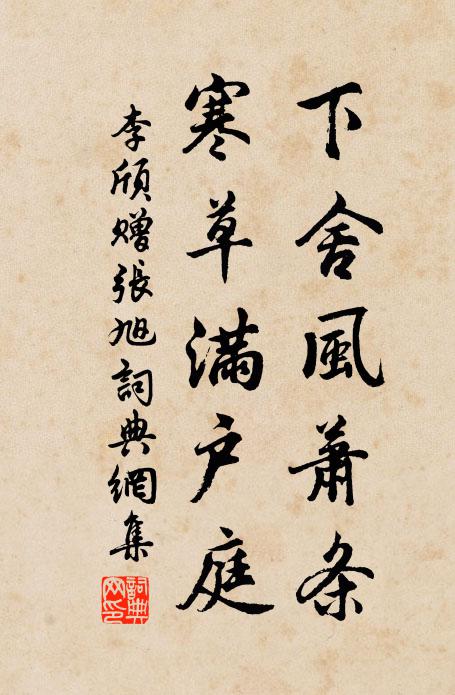 下舍風蕭条
寒草滿户庭
李頎赠張旭詞典網集
詞典
网印